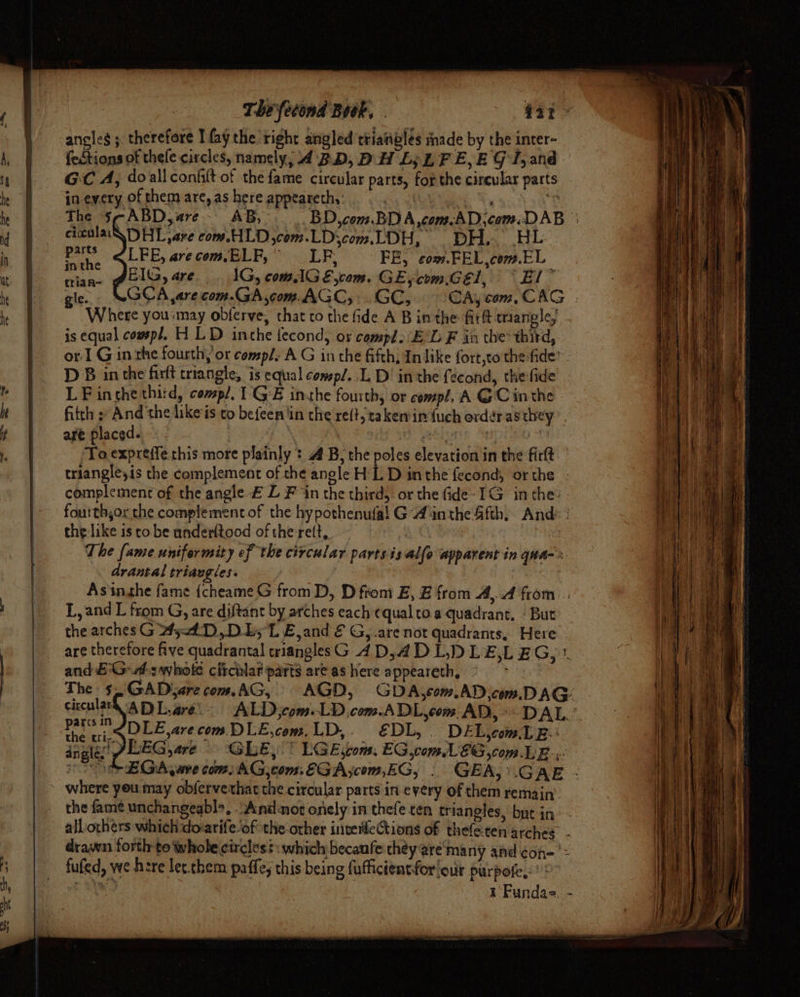 The second Book.
angles; therefore I say the right angled triangles made by the inter-
sections of these circles, namely, A B D, D H L, L F E, E G I, and
G C A, do all consist of the same circular parts, for the circular parts
in every of them are, as here appeareth,
The 5 circular parts in the triangle.
ABD, are AB, BD, com.BDA, com.AD, com.DAB
DHL, are com.HLD, com.LD, com.LDH, DH. HL
LFE, are com.ELF, LF, FE, com.FEL, com.EL
EIG, are IG, com.IGE, com. GE, com.GEI, EI
GCA, are com.GA, com.AGC, GC, CA, com.CAG
Where you may observe, that to the side A B in the first triangle,
is equal compl. H L D in the second, or compl. E L F in the third,
or I G in the fourth, or compl. A G in the fifth. In like sort, to the side
D B in the first triangle, is equal compl. L D in the second, the side
L F in the third, compl. I G E in the fourth, or compl. A G C in the
fifth: And the like is to be seen in the rest, taken in such order as they
are placed.
To expresse this more plainly: A B, the poles elevation in the first
triangle, is the complement of the angle H L D in the second, or the
complement of the angle E L F in the third, or the side I G in the
fourth, or the complement of the hypothenusal G A in the fifth. And
the like is to be understood of the rest.
The same uniformity of the circular parts is also apparent in qua-
drantal triangles.
As in the same scheame G from D, D from E, E from A, A from
L, and L from G, are distant by arches each equal to a quadrant. But
the arches G A, A D, D L, L E, and E G, are not quadrants, Here
are therefore five quadrantal triangles G A D, A D L, D L E, L E G,
and E G A: whose circular parts are as here appeareth,
The 5 circular parts in the triangle.
GAD, are com.AG, AGD, GDA, com.AD, com.DAG
ADL are ALD, com.LD, com.ADL, com. AD, DAL.
DLE, are com DLE, com. LD, EDL, DEL, com.LE.
LEG, are GLE, LGE, com. EG, com.LEG, com.LE
EGA, are com. AG, com.EGA, com.EG, GEA, GAE
where you may observe that the circular parts in every of them remain
the same unchangeable. And not onely in these ten triangles, but in
all others which do arise of the other intersections of these ten arches
drawn forth to whole circles: which because they are many and con-
fused, we here let them passe, this being sufficient for our purpose.
1 Funda-